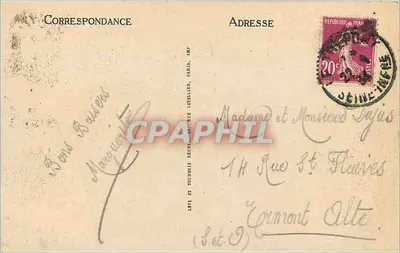 CORRESPONDANCE
ADRESSE
REPUBLIQUE FRANÇAISE
20c
POSTES
SEINE-INFRE
Bons Baisers
Marguerite
CPAPHIL
LEVY ET NEURDEIN RÉUNIS, 44, RUE LETELLIER, PARIS, IMP
Madame et Monsieur Dujas
14 Rue St Flaives
Ermont
(S. et O)